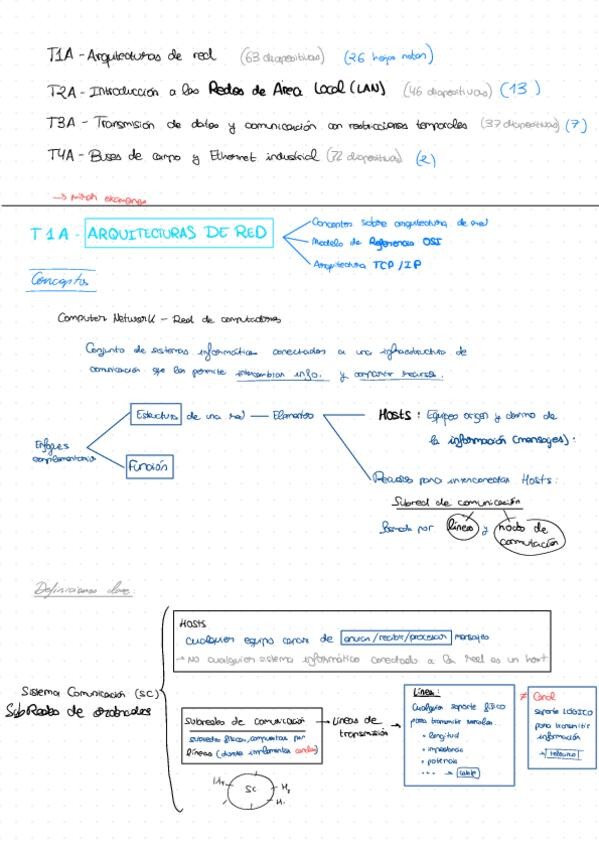 T1A - Arquitecturas de red (63 diapositivas) (26 hojas notan)
T2A - Introducción a las Redes de Area Local (LAN) (46 diapositivas) (13)
T3A - Transmisión de datos y comunicación con restricciones temporales (37 diapositivas) (7)
T4A - Buses de campo y Ethernet industrial (72 diapositivas) (2)
T1A - ARQUITECTURAS DE RED
Conceptos sobre arquitectura de red
Modelo de Referencia OSI
Arquitectura TCP/IP
Conceptos
Computer Network - Red de computadores
Conjunto de sistemas informáticos conectados a una infraestructura de
comunicación que les permite intercambiar info. y compartir recursos.
Enfoques
complementarios
Estructura de una red - Elementos
Función
Hosts: Equipos origen y destino de
la información (mensajes).
Recursos para interconectar Hosts:
Subred de comunicación
formada por líneas y nodos de
conmutación
Definiciones clave:
Sistema Comunicación (SC)
SubRedes de
HOSTS
cualquier equipo capaz de enviar/recibir/procesar mensajes
→ No cualquier sistema informático conectado a la red es un host
Subredes de comunicación
físicos, compuestas por
líneas (donde implementan canales)
→ Líneas de
transmisión
Línea:
Cualquier soporte físico
para transmitir señales.
• longitud
• impedancia
• potencia
... → cable
≠ Canal
soporte LÓGICO
para transmitir
información
SC